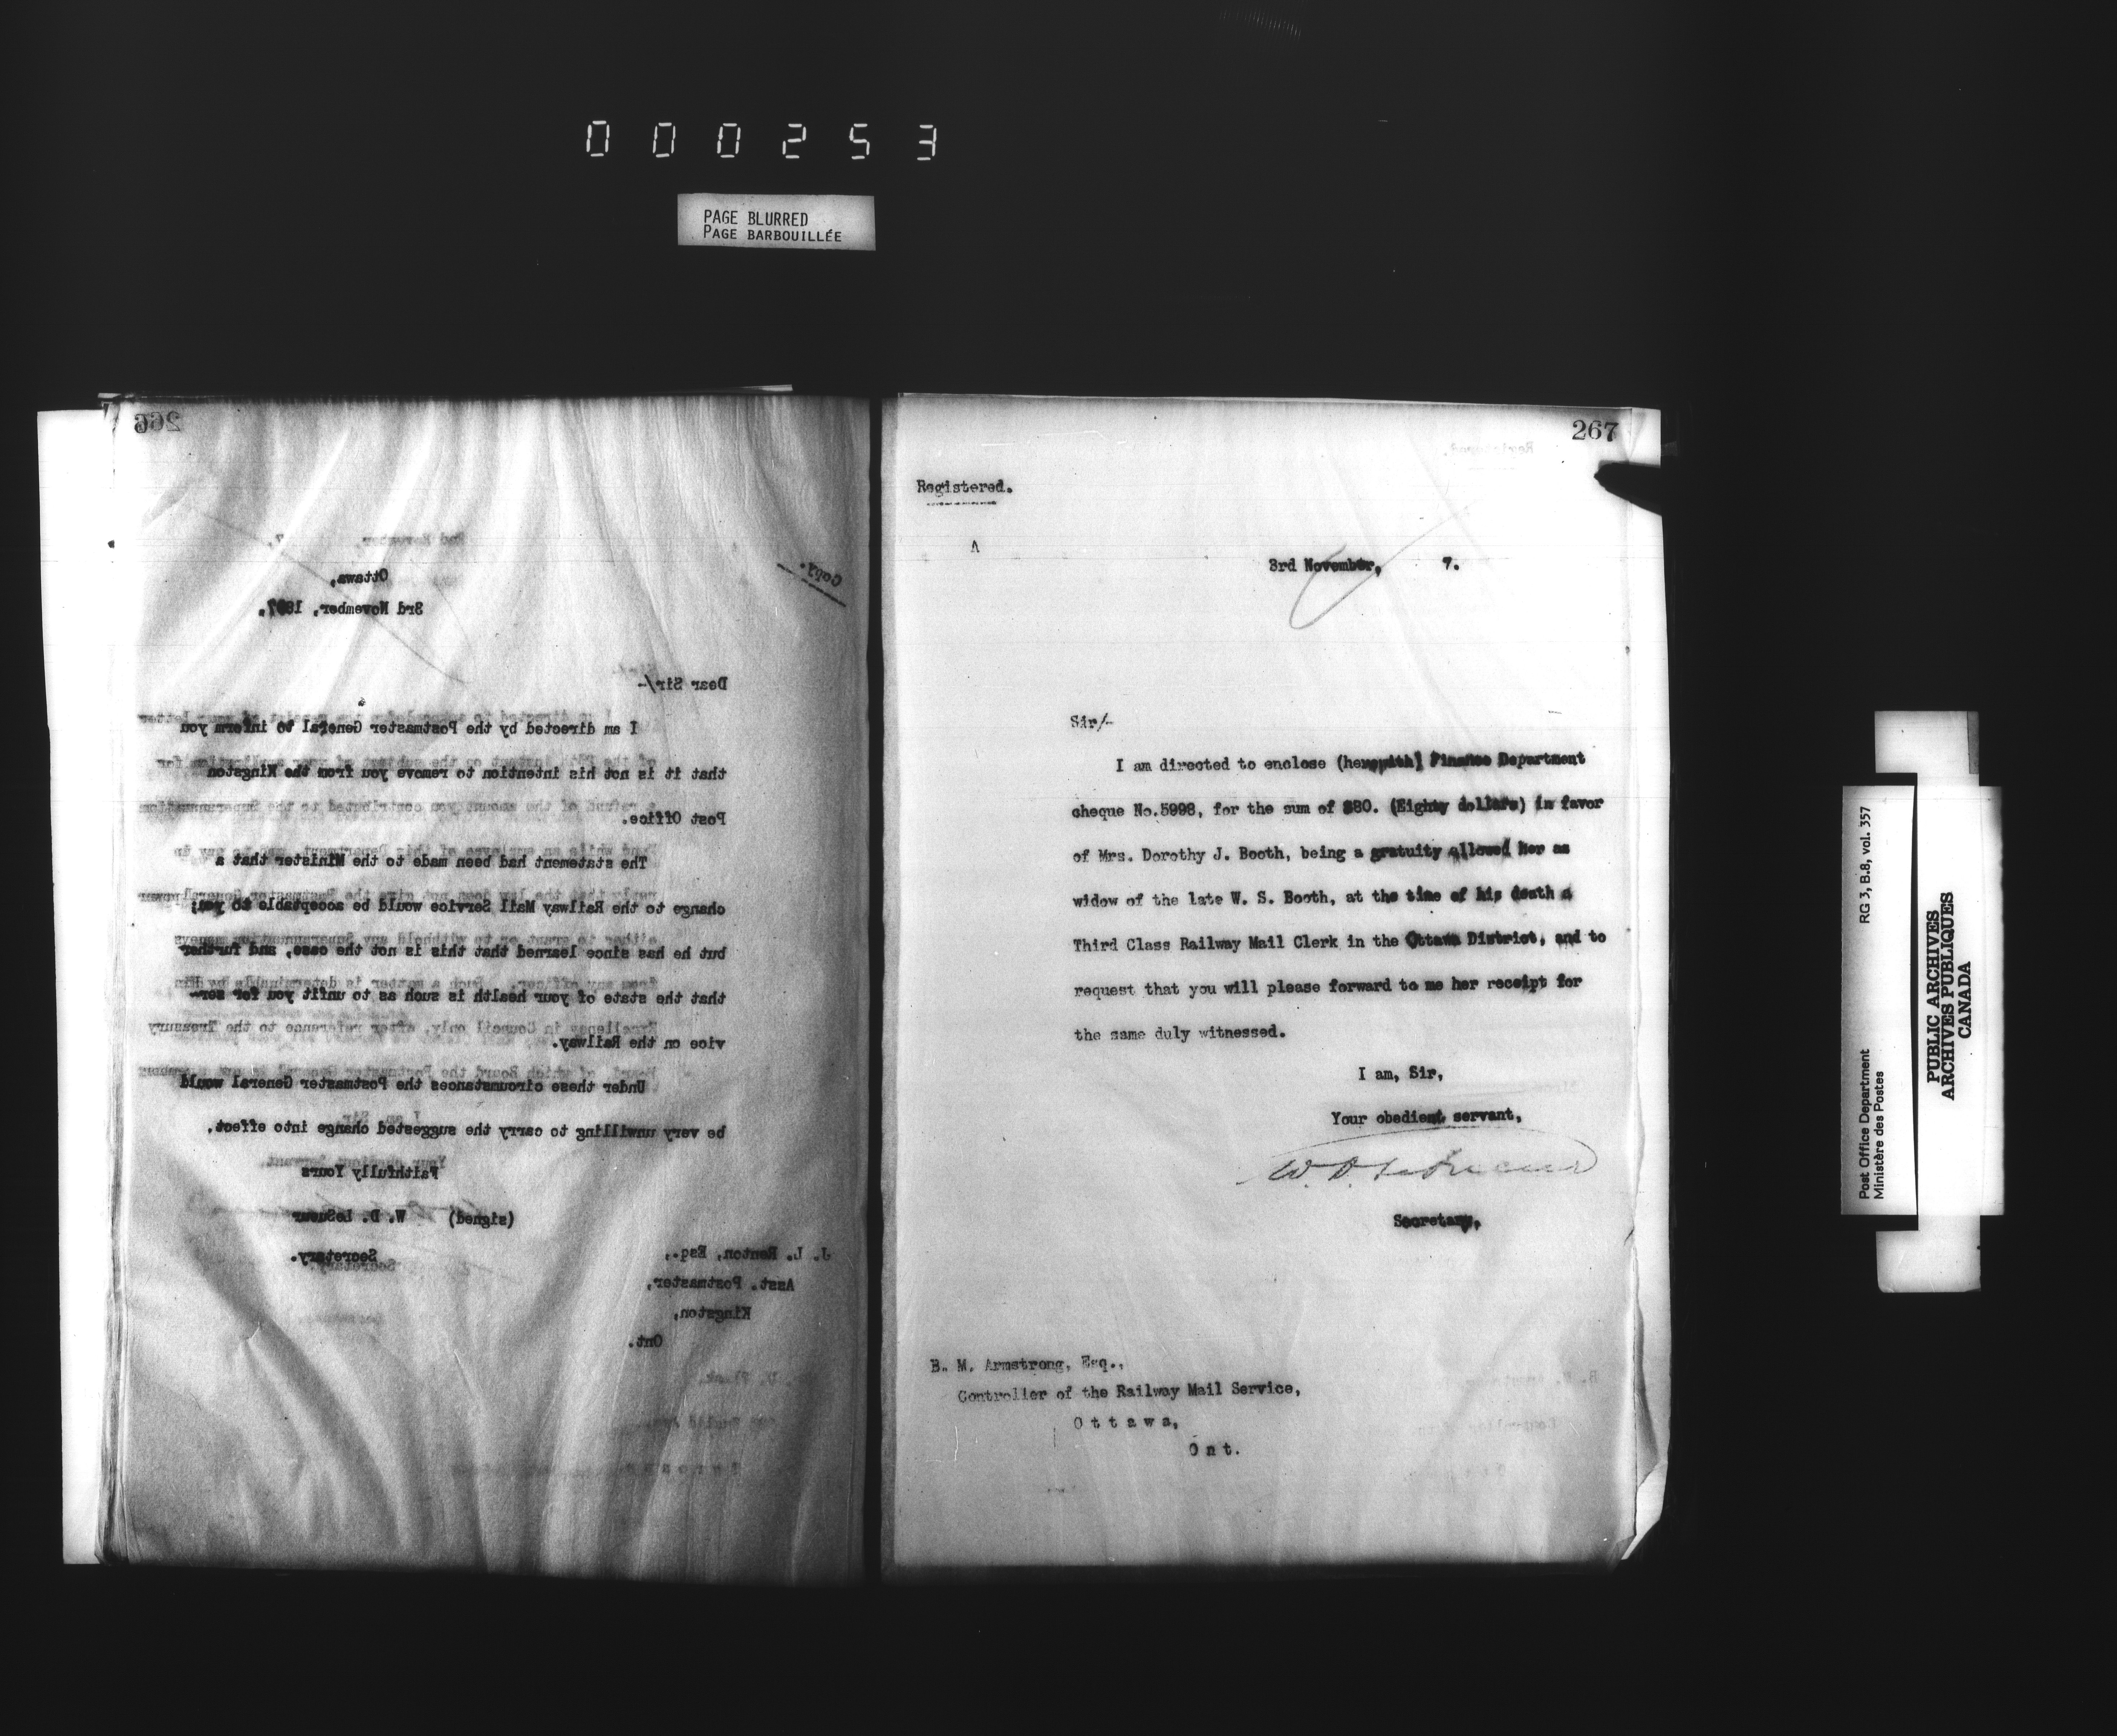 000253
PAGE BLURRED
PAGE BARBOUILLÉE
266
Copy.
Ottawa,
3rd November, 1897.
Dear Sir/-
I am directed by the Postmaster General to inform you
that it is not his intention to remove you from the Kingston
Post Office.
The statement had been made to the Minister that a
change to the Railway Mail Service would be acceptable to you;
but he has since learned that this is not the case, and further
that the state of your health is such as to unfit you for ser-
vice on the Railway.
Under these circumstances the Postmaster General would
be very unwilling to carry the suggested change into effect.
Faithfully Yours
(signed) W. D. LeSueur
Secretary.
J. L. Renton, Esq.,
Asst. Postmaster,
Kingston,
Ont.
267
Registered.
3rd November, 7.
Sir/-
I am directed to enclose (herewith) Finance Department
cheque No.5998, for the sum of $80. (Eighty dollars) in favor
of Mrs. Dorothy J. Booth, being a gratuity allowed her as
widow of the late W. S. Booth, at the time of his death a
Third Class Railway Mail Clerk in the Ottawa District, and to
request that you will please forward to me her receipt for
the same duly witnessed.
I am, Sir,
Your obedient servant,
W. D. LeSueur
Secretary.
B. M. Armstrong, Esq.,
Controller of the Railway Mail Service,
Ottawa,
Ont.
Post Office Department RG 3, B.8, vol. 357
Ministère des Postes
PUBLIC ARCHIVES
ARCHIVES PUBLIQUES
CANADA